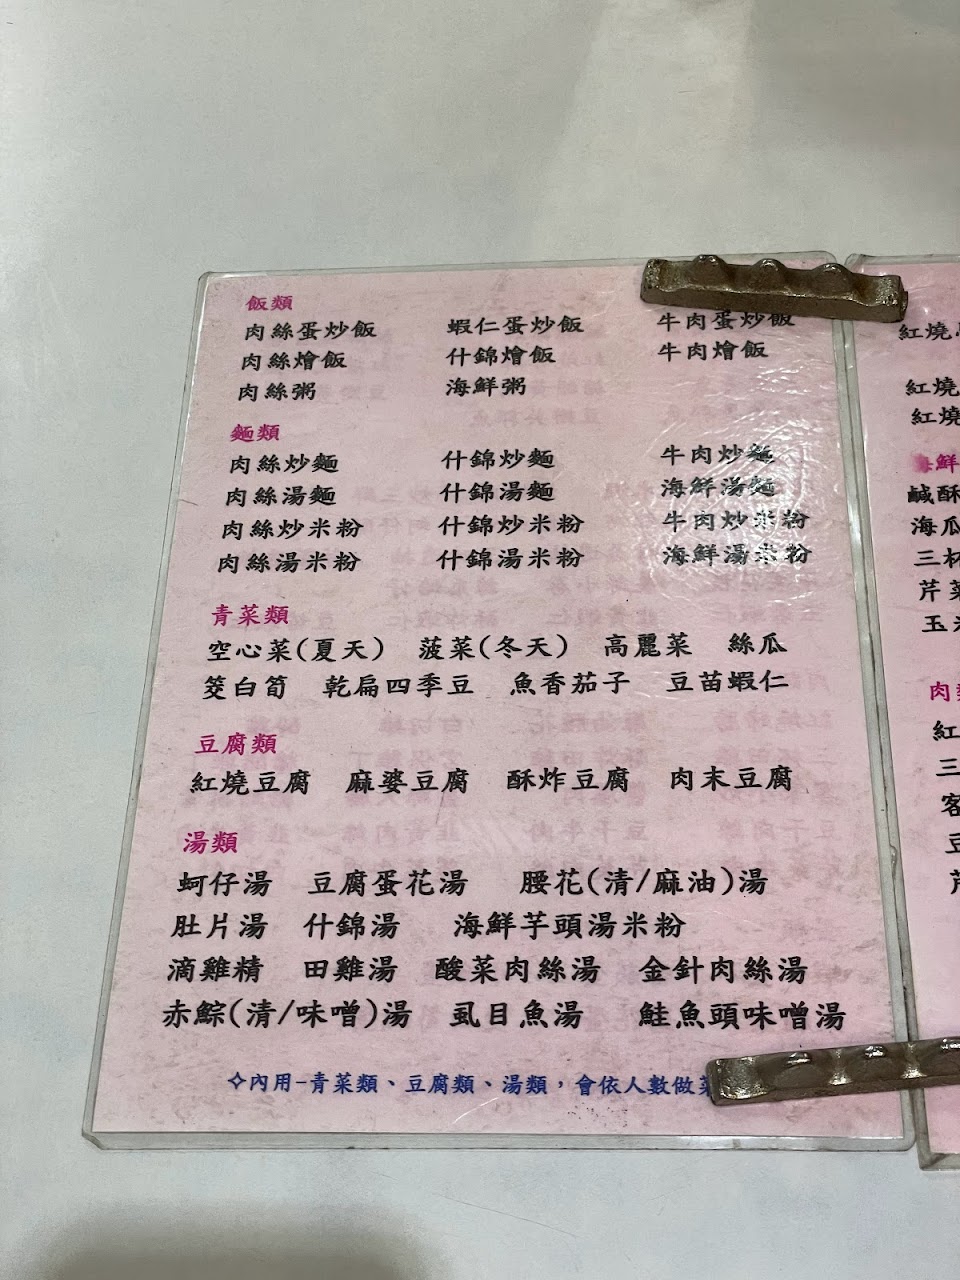 飯類
肉絲蛋炒飯 蝦仁蛋炒飯 牛肉蛋炒飯
肉絲燴飯 什錦燴飯 牛肉燴飯
肉絲粥 海鮮粥
麵類
肉絲炒麵 什錦炒麵 牛肉炒麵
肉絲湯麵 什錦湯麵 海鮮湯麵
肉絲炒米粉 什錦炒米粉 牛肉炒米粉
肉絲湯米粉 什錦湯米粉 海鮮湯米粉
青菜類
空心菜(夏天) 菠菜(冬天) 高麗菜 絲瓜
筊白筍 乾扁四季豆 魚香茄子 豆苗蝦仁
豆腐類
紅燒豆腐 麻婆豆腐 酥炸豆腐 肉末豆腐
湯類
蚵仔湯 豆腐蛋花湯 腰花(清/麻油)湯
肚片湯 什錦湯 海鮮芋頭湯米粉
滴雞精 田雞湯 酸菜肉絲湯 金針肉絲湯
赤鯮(清/味噌)湯 虱目魚湯 鮭魚頭味噌湯
✧內用-青菜類、豆腐類、湯類，會依人數做
紅燒
紅燒
紅燒
海鮮
鹹酥
海瓜
三杯
芹菜
玉米
肉類
紅
三
客
豆
芹